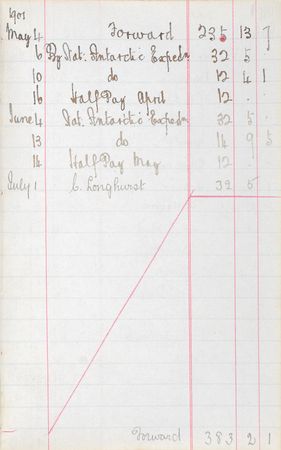 1901
May 4 Forward 235 13 7
6 By Nat. Antarctic Expedn 32 5 ·
10 do 12 4 1
16 Half Pay April 12 · ·
June 4 Nat. Antarctic Expedn 32 5 ·
13 do 14 9 5
14 Half Pay May 12 · ·
July 1 C. Longhurst 32 5
Forward 383 2 1